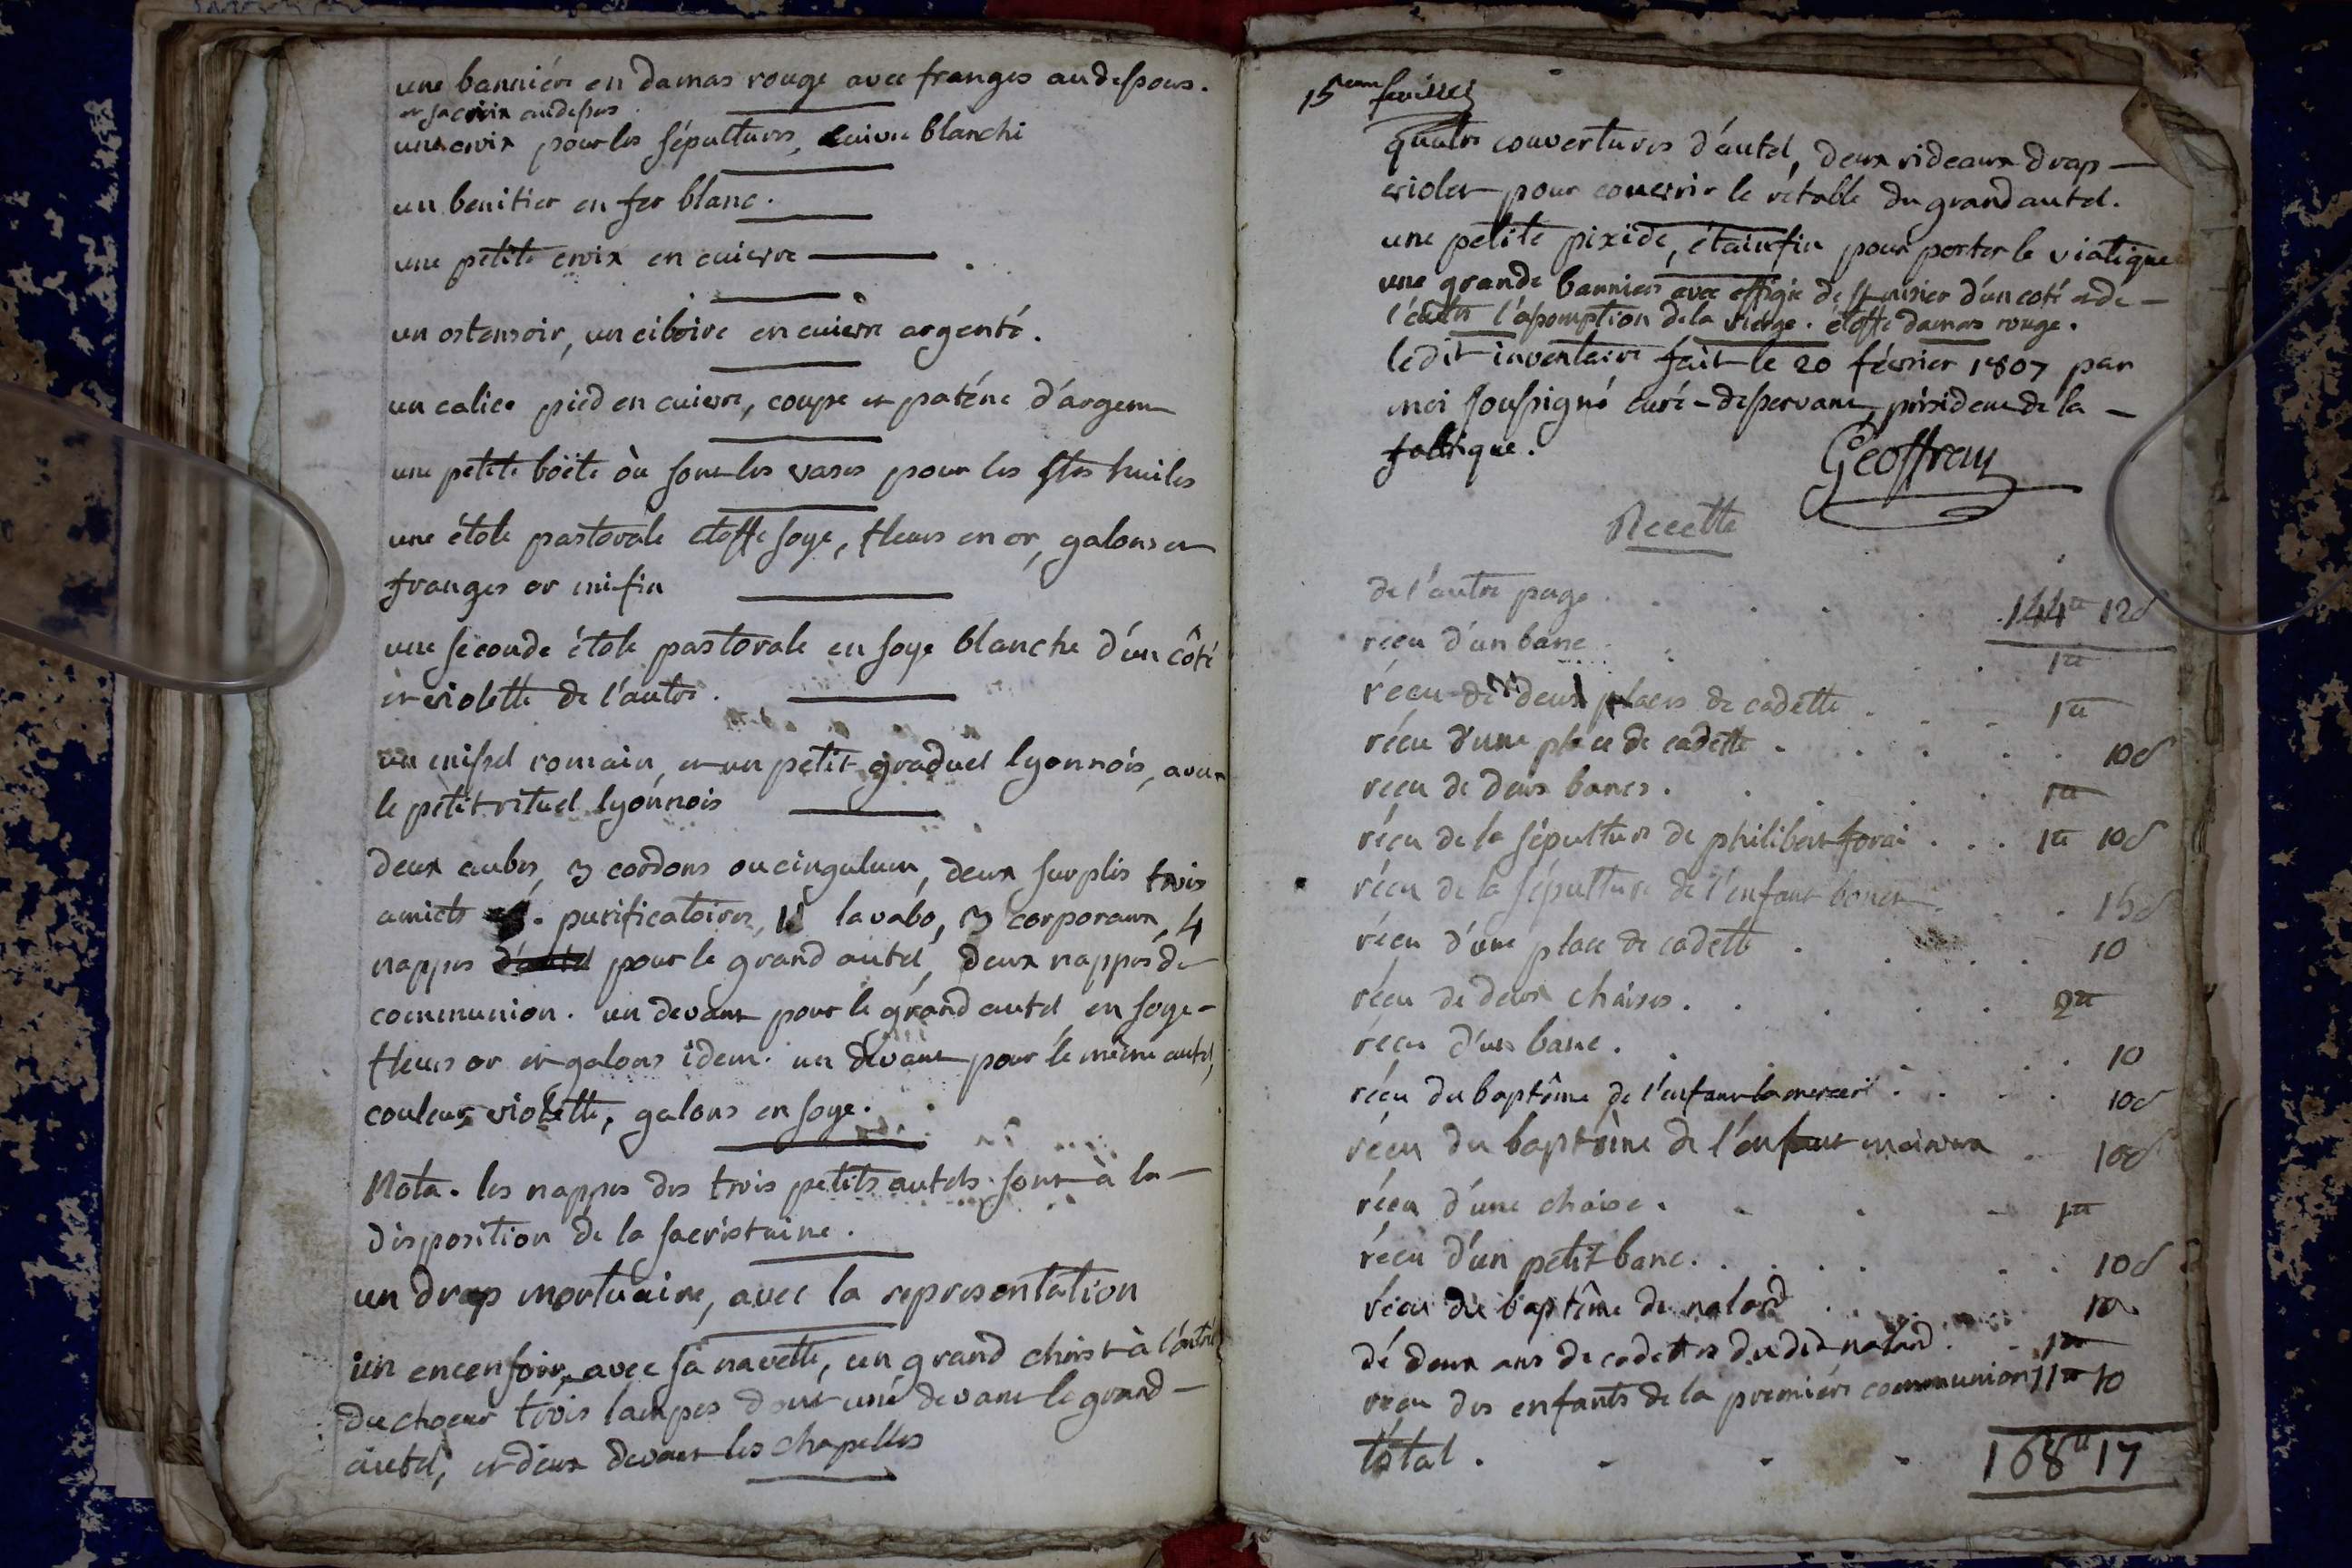 une banniére en damas rouge avec franges audessous.
et sa croix audessus
une croix pour les sépultures, cuivre blanchi
un benitier en fer blanc.
une petite croix en cuivre
un ostensoir, un ciboire en cuivre argenté.
un calice pied en cuivre, coupe et paténe d'argent
une petite boëte où sont les vases pour les stes huiles
une étole pastorale étoffe soye, fleurs en or, galons et
franges or mifin
une seconde étole pastorale en soye blanche d'un côté
et violette de l'autre.
un missel romain, et un petit graduel lyonnois, avec
le petit rituel lyonnois
deux aubes, 3 cordons ou cingulum, deux surplis trois
amicts . purificatoires, lavabo, 3 corporaux, 4
nappes d'autel pour le grand autel, deux nappes de
communion. un devant pour le grand autel en soye
fleurs or et galons idem. un devant pour le même autel,
couleur violette, galons en soye.
Nota. les nappes des trois petits autels sont à la
disposition de la sacristaine.
un drap mortuaire, avec la representation
un encensoir, avec sa navette, un grand christ à l'entrée
du choeur trois lampes dont une devant le grand
autel, et deux devant les chapelles
15eme feuillet
quatre couvertures d'autel, deux rideaux drap
violet pour couvrir le rétable du grand autel.
une petite pixide, étain fin pour porter le viatique
une grande banniere avec effigie de st d'un coté et de
l'autre l'assomption de la vierge. étoffe damas rouge.
ledit inventaire fait le 20 février 1807 par
moi soussigné curé-desservant, président de la
fabrique.
Geoffray
Recette
de l'autre page . . . . . 144tt 12s
reçu d'un banc . . . . . 1tt
reçu de deux places de cadette . . . 1tt
réçu d'une place de cadette . . . . . 10s
reçu de deux bancs . . . . . 1tt
réçu de la sépulture de philibert forai . . . 1tt 10s
réçu de la sépulture de l'enfant . . . 15s
réçu d'une place de cadette . . . . 10
réçu de deux chaises . . . . . 2tt
réçu d'un banc . . . . 10
réçu du baptême de l'enfant lamercerie . . . . 10s
réçu du baptême de l'enfant . 10s
réçu d'une chaise . . . . 1tt
réçu d'un petit banc . . . . . . 10s
réçu du baptême de naland . . . . 10
de deux ans de cadettes dudit naland . . 1tt
reçu des enfants de la premiére communion 11tt 10
total . . . . 168tt 17